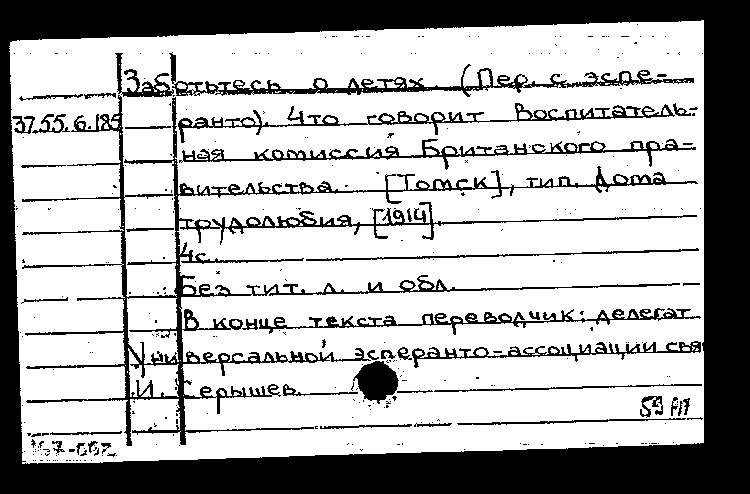 Заботьтесь о детях. (Пер. с эспе-
37.55.6.185 ранто). Что говорит Воспитатель-
ная комиссия Британского пра-
вительства. [Томск], тип. Дома
трудолюбия, [1914].
4с.
Без тит. л. и обл.
В конце текста переводчик: делегат
Универсальной эсперанто-ассоциации свя
И. Серышев.
59
167-002